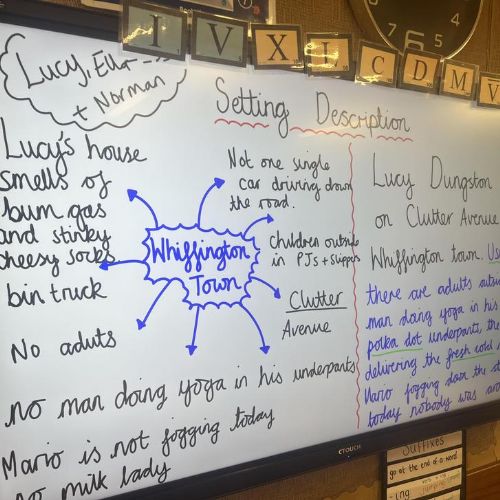 I V X L C D M V
Lucy, Ella
+ Norman
Setting Description
Lucy's house
smells of
bum gas
and stinky
cheesy socks
bin truck
No aduts
Not one single
car driving down
the road.
children outside
in PJs + slippers
Clutter
Avenue
Whiffington
Town
no man doing yoga in his underpants
Mario is not fogging today
no milk lady
Lucy Dungston
on Clutter Avenue
Whiffington town.
there are adults
man doing yoga in his
polka dot underpants, the
delivering the fresh cold
Mario fogging down the
today nobody was
CTOUCH
Suffixes
go at the end of a word
-ing